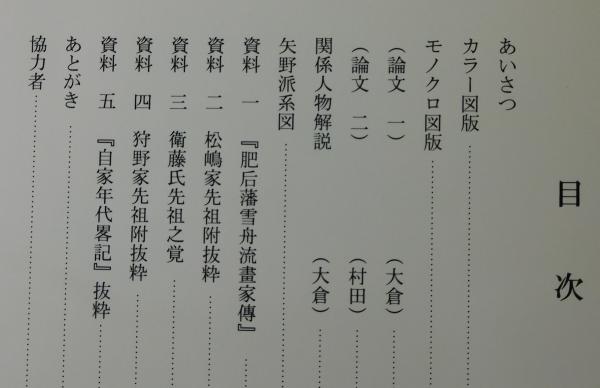 目次
あいさつ
カラー図版
モノクロ図版
（論文 一）（大倉）
（論文 二）（村田）
関係人物解説（大倉）
矢野派系図
資料 一 『肥后藩雪舟流畫家傳』
資料 二 松嶋家先祖附抜粋
資料 三 衛藤氏先祖之覚
資料 四 狩野家先祖附抜粋
資料 五 『自家年代畧記』抜粋
あとがき
協力者